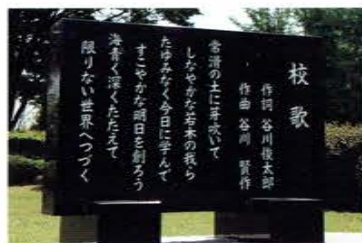 校歌
作詞 谷川俊太郎
作曲 谷川 賢作
常滑の土に芽吹いて
しなやかな若木の我ら
たゆみなく今日に学んで
すこやかな明日を創ろう
海青く深くたたえて
限りない世界へつづく